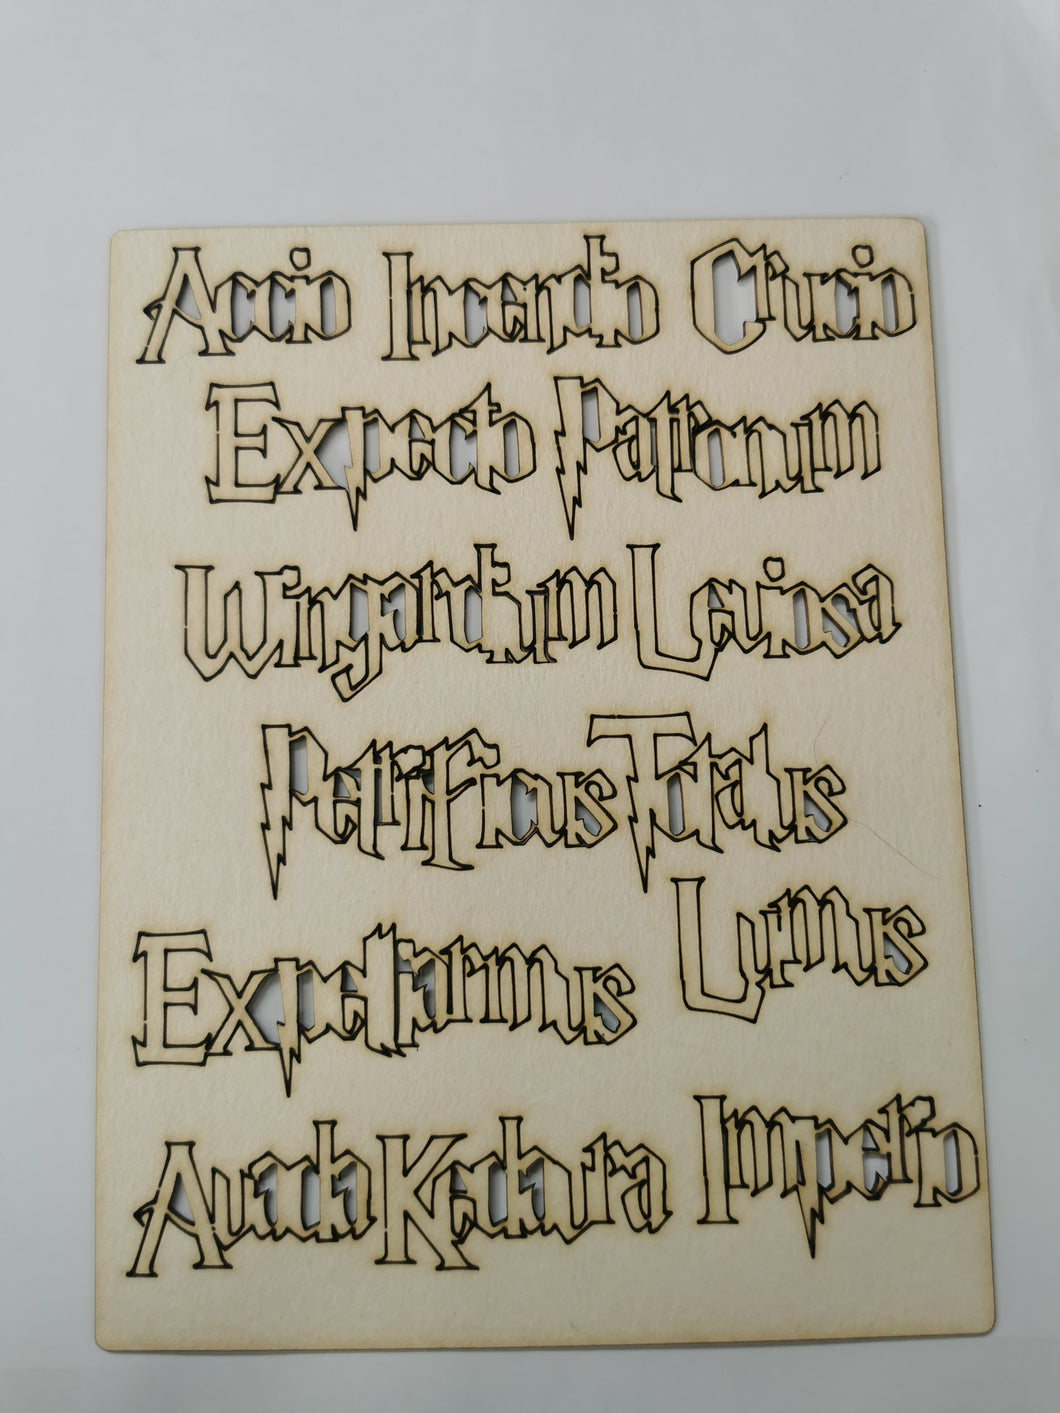 Accio Incendio Crucio
Expecto Patronum
Wingardium Leviosa
Petrificus Totalus
Expelliarmus Lumus
Avada Kedavra Imperio